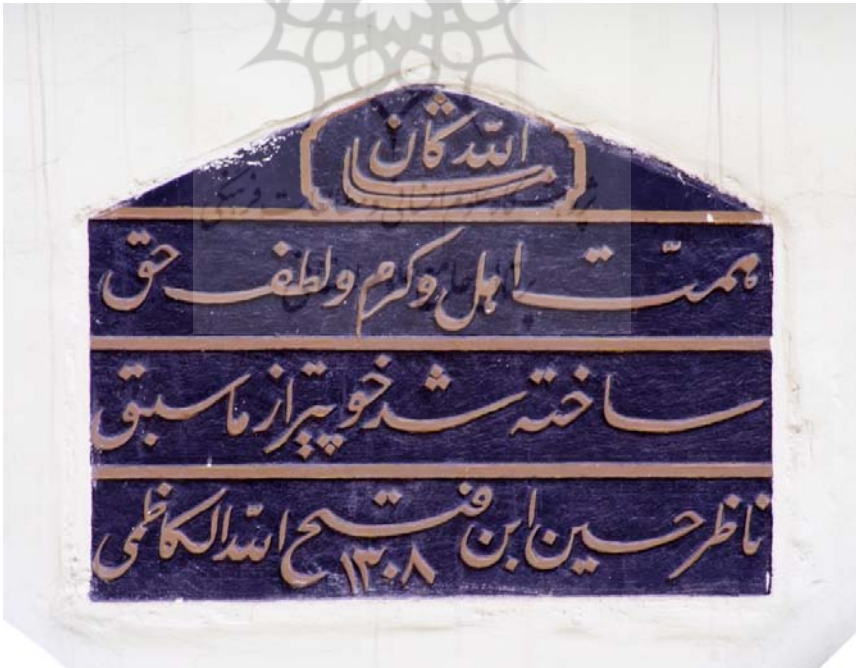 ماشا الله کان
همّت اهل و کرم و لطف حق
ساخته شد خوبتر از ماسبق
ناظر حسین ابن فتح الله الکاظمی
۱۳۰۸